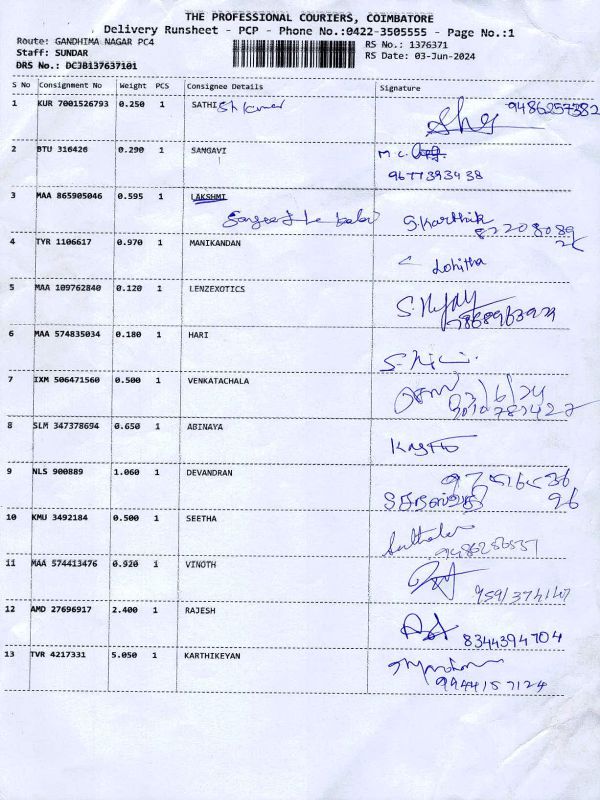 THE PROFESSIONAL COURIERS, COIMBATORE
Delivery Runsheet - PCP - Phone No.:0422-3505555 - Page No.:1
Route: GANDHIMA NAGAR PC4 RS No.: 1376371
Staff: SUNDAR RS Date: 03-Jun-2024
DRS No.: DCJB137637101
S No Consignment No Weight PCS Consignee Details Signature
1 KUR 7001526793 0.250 1 SATHISH kumar 9486257382
2 BTU 316426 0.290 1 SANGAVI M C
9677393438
3 MAA 865905046 0.595 1 LAKSHMI
S. Karthik
4 TYR 1106617 0.970 1 MANIKANDAN
Lohitha
5 MAA 109762840 0.120 1 LENZEXOTICS
6 MAA 574835034 0.180 1 HARI
7 IXM 506471560 0.500 1 VENKATACHALA
3/6/24
8 SLM 347378694 0.650 1 ABINAYA
9 NLS 900889 1.060 1 DEVANDRAN
10 KMU 3492184 0.500 1 SEETHA
11 MAA 574413476 0.920 1 VINOTH
12 AMD 27696917 2.400 1 RAJESH
8344394704
13 TVR 4217331 5.050 1 KARTHIKEYAN
9944157124